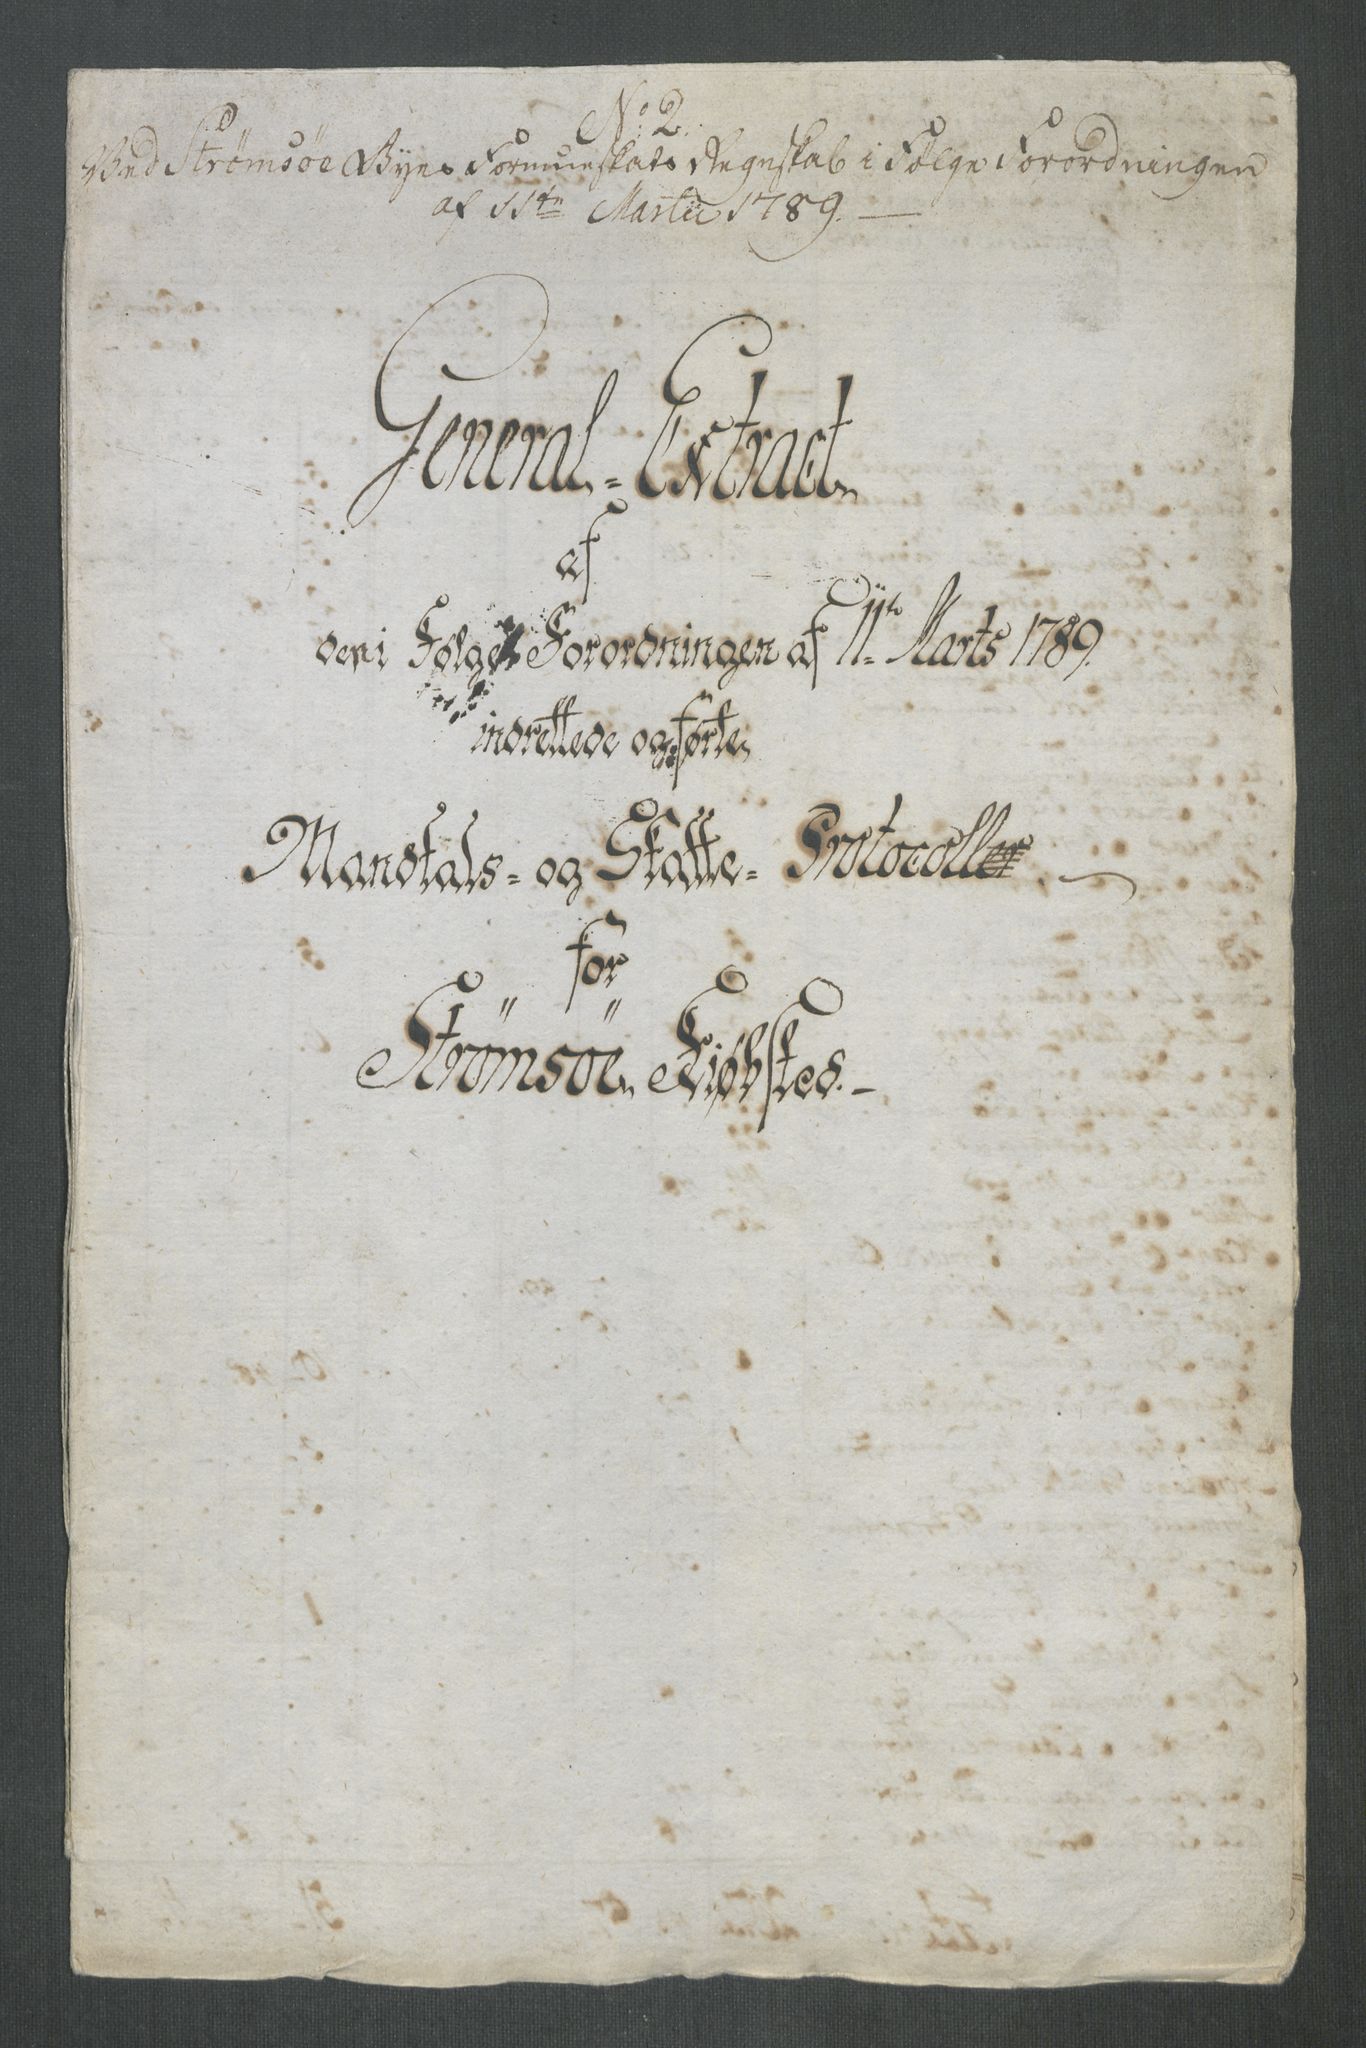 No: 2.
Ved Strømsøe Byes Formueskats Regnskab i Følge Forordningen
af 11te Martii 1789.
General-Extract
af
den i Følge Forordningen af 11te Marts 1789.
indrettede og førte
Mandtals- og Skatte-Protocoller
for
Strømsøe Kiøbsted.